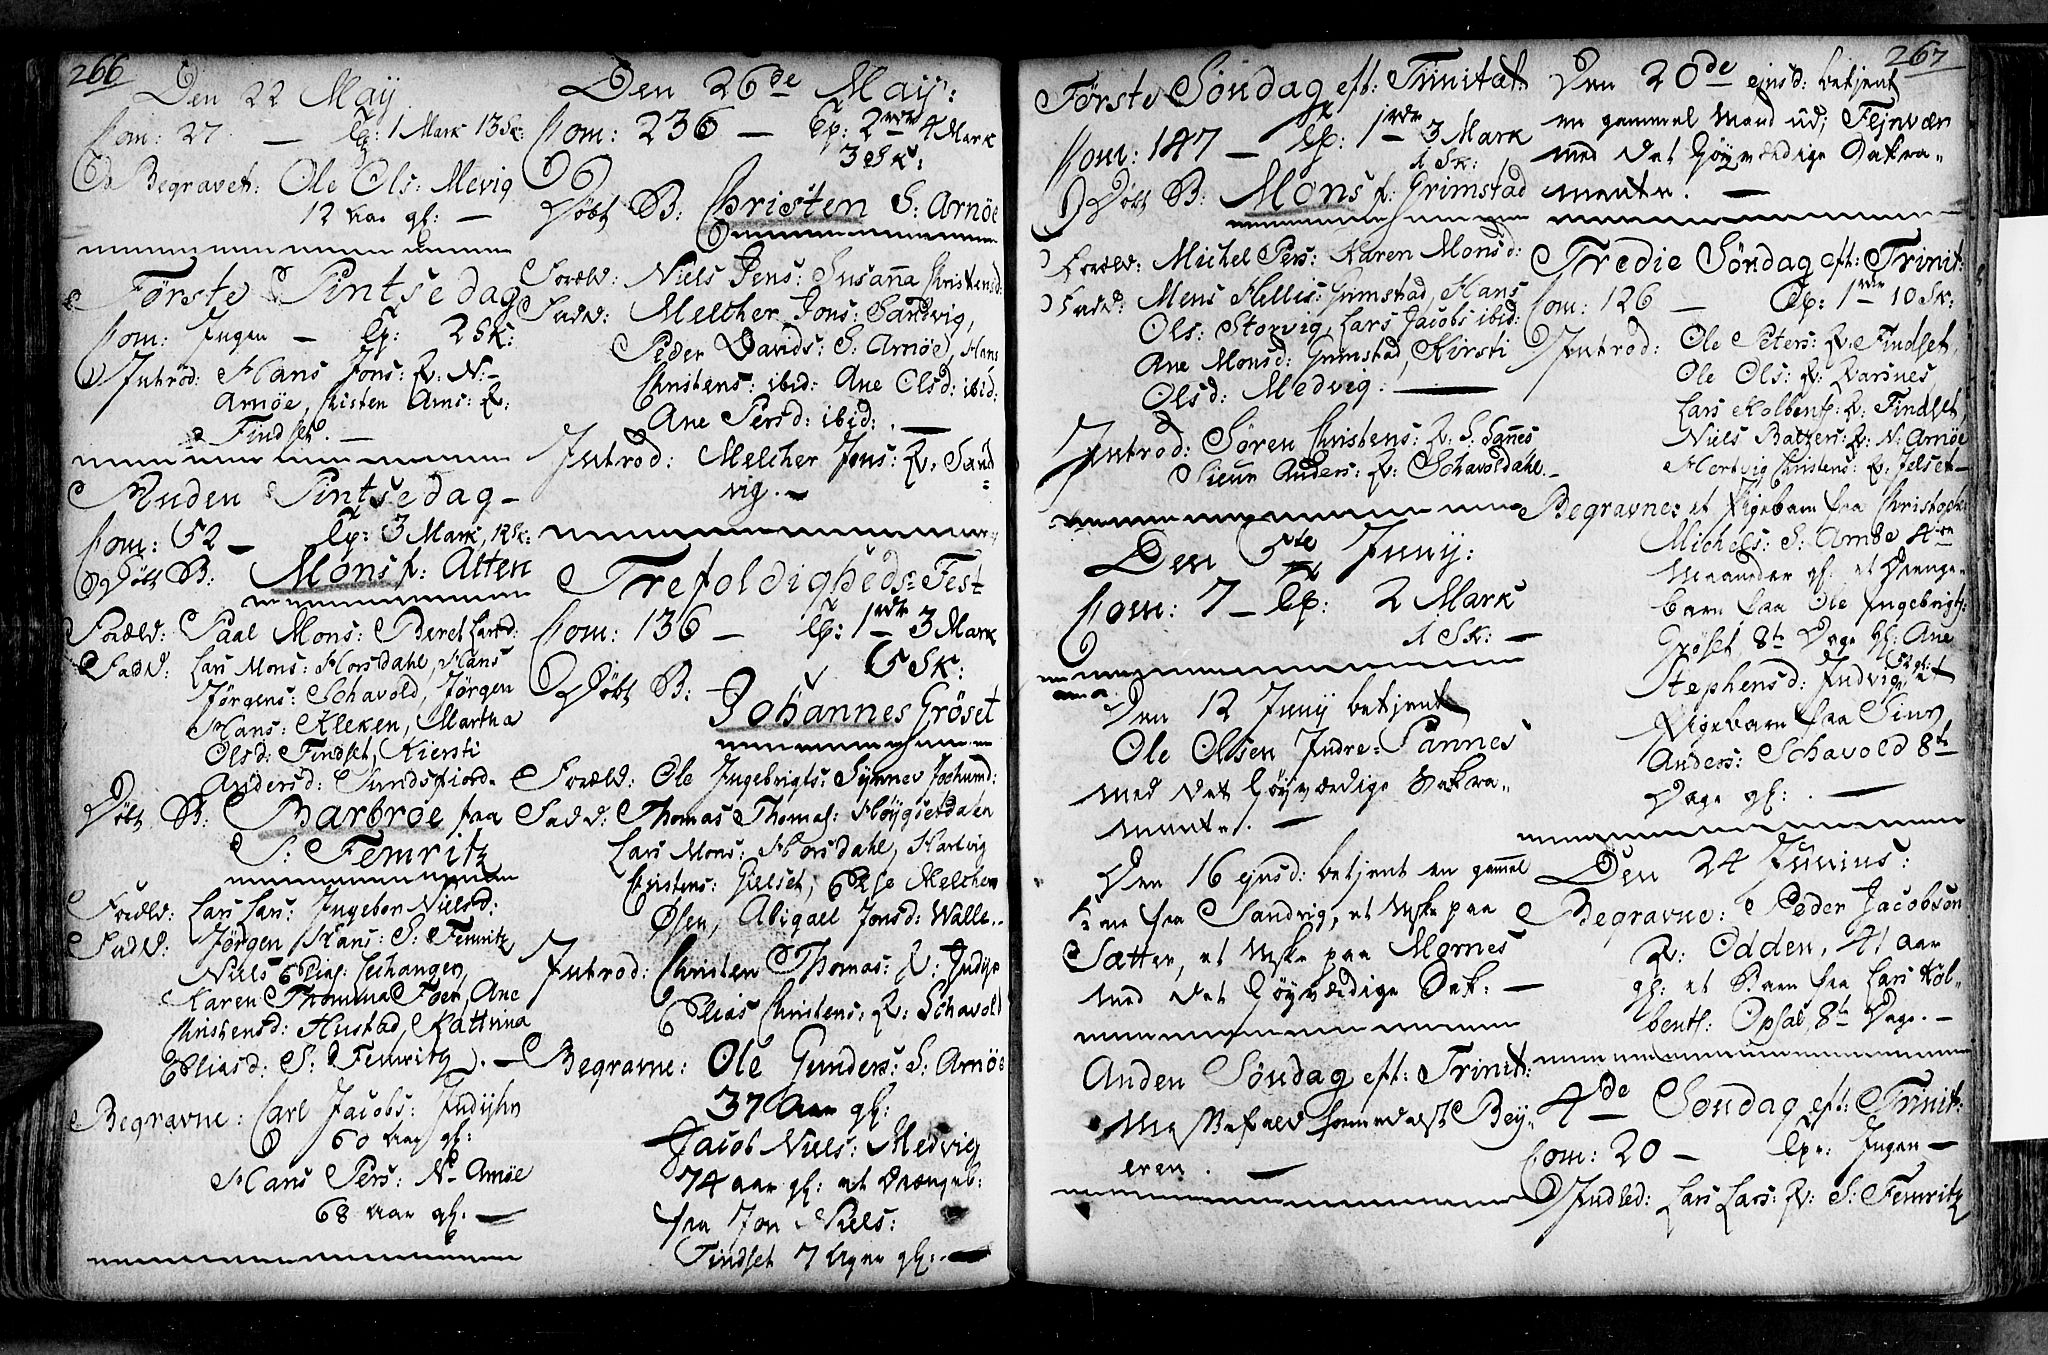 266
Den 22 May
Com: 27 — Cp: 1 Mark 13 Sk:
Begravet: Ole Ols: Mevig
12 aar gl: —
Første Pintsedag
Com: Ingen — Cp: 2 Sk:
Introd: Hans Jons: Q: N:
Arnøe, Christen Arns: Q:
Findset. —
Anden Pintsedag —
Com: 52 — Cp: 3 Mark, 12 Sk:
Døbt B: Mons f: Atten
Foræld: Paal Mons: Beret Larsd:
Fadd: Lars Mons: Horsdahl, Hans
Jørgens: Schavold, Jørgen
Hans: Kleken, Martha
Olsd: Findset, Kiersti
Andersd: Sundsfiord.
Døbt B: Barbroe fra
S: Femritz
Foræld: Lars Lars: Ingebor Nielsd:
Fadd: Jørgen Hans: S: Femritz
Niels Elias: Lechangen,
Karen Thomma Foer, Ane
Christensd: Hustad, Kattrina
Eliasd: S: Femritz. —
Begravne: Carl Jacobs: Indyhr
60 aar gl:
Hans Pers: N. Arnøe
68 aar gl: —
Den 26de May:
Com: 236 — Cp: 2 rdr 4 Mark
3 Sk:
Døbt B: Christen S: Arnøe
Foræld: Niels Jens: Susanna Christensd:
Fadd: Melcher Jons: Sandvig,
Peder Davids: S: Arnøe, Hans
Christens: ibid: Ane Olsd: ibid:
Ane Persd: ibid: . —
Introd: Melcher Jons: Q: Sand
vig. —
Trefoldigheds: Fest
Com: 136 — Cp: 1 rdr 3 Mark
5 Sk:
Døbt B: Johannes Grøset
Foræld: Ole Ingebrigts: Synnev Jochumd:
Fadd: Thomas Thomas: Høygsetdalen
Lars Mons: Horsdahl, Hartvig
Christens: Gielset, Else Melchers
Øsen, Abigael Jonsd: Walle.
Introd: Christen Thomas: Q: Indyr
Elias Christens: Q: Schavold
Begravne: Ole Gunders: S: Arnøe
37 Aar gl:
Jacob Niels: Medvig
74 aar gl: et Drængeb:
fra Jon Niels:
Findset 7 Uger gl: —
267
Første Søndag eft: Trinitat:
Com: 147 — Cp: 1 rdr 3 Mark
1 Sk:
Døbt B: Mons f: Grimstad
Foræld: Michel Pers: Karen Monsd:
Fadd: Mens Hellis: Grimstad, Hans
Ols: Storvig, Lars Jacobs ibid:
Ane Monsd: Grimstad, Kirsti
Olsd: Medvig. —
Introd: Søren Christens: Q: S: Sannes
Sieur Anders: Q: Schavoldahl. —
Den 5te Juny:
Com: 7 — Cp: 2 Mark
1 Sk: —
Den 12 Juny betjent
Ole Olsen Indre=Sannes
med det høyværdige Sakra„
mente. —
Den 16 ejusd: betjent en gammel
fra Sandvig, et paa
Sætter, et paa Mørnes
med det høyværdige Sak: —
Anden Søndag eft: Trinit:
Beÿ„
eren. —
Den 20de ejusd: betjent
en gammel Mand ud i Fejnvær
med det høyværdige Sakra„
mente. —
Tredie Søndag eft: Trinit:
Com: 126 — Cp: 1 rdr 10 Sk:
Introd: Ole Peters: Q: Findset,
Ole Ols: Q: Qvarsnes,
Lars Kolbens: Q: Findset,
Niels Baltzers: Q: N: Arnøe
Hertvig Christens: Q: Jelset —
Begravnes et Pigebarn fra Christoph:
Michels: S: Arnøe 4re
Maaneder gl: et Drenge„
barn fra Ole Ingebrigts:
Grøset, 8te Dage gl: Ane
Stephensd: Indvig, 52 gl: et
Pigebarn fra Siur
Anders: Schavold 8te
Dage gl: . —
Den 24 Junius:
Begravne: Peder Jacobsøn
Q: Odden, 41 aar
gl: et Barn fra Lars Kol„
bents: Opsal, 8te Dage. —
4de Søndag eft: Trinit:
Com: 20 — Cp: Ingen —
Indled: Lars Lars: Q: S: Femritz